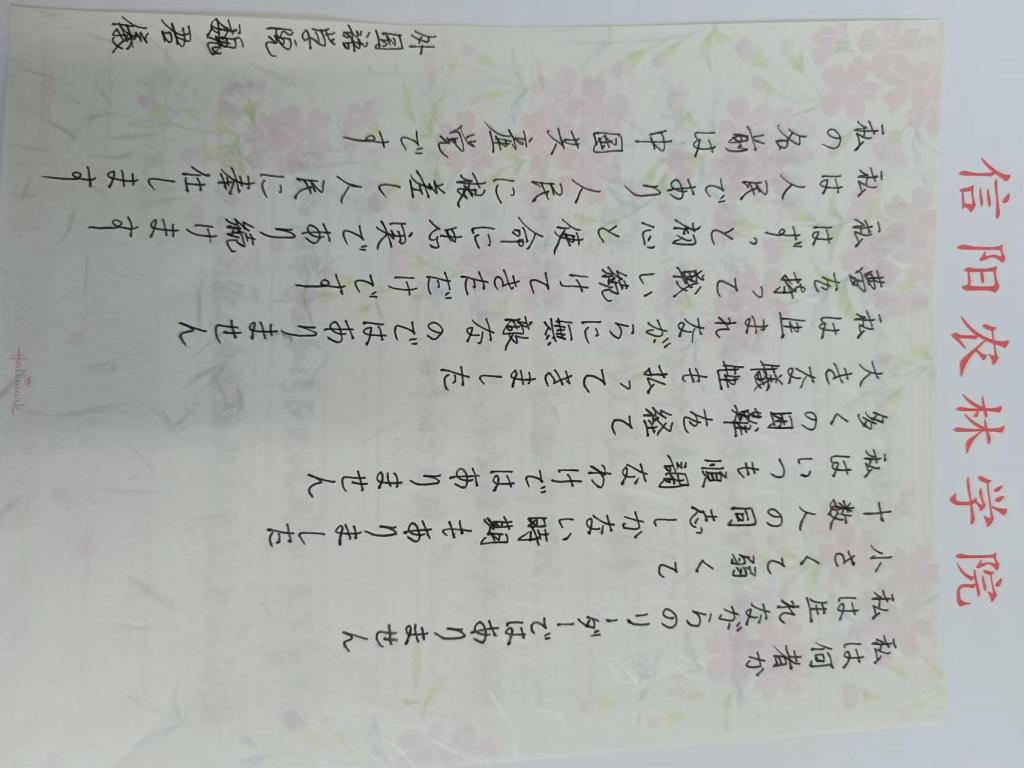 信阳农林学院
私は何者か
私は生れながらのリーダーではありません
小さくて弱くて
十数人の同志しかない時期もありました
私はいつも順調なわけではありません
多くの困難を経て
大きな犠牲も払ってきました
私は生まれながらに無敵なのではありません
夢を持って戦い続けてきただけです
私はずっと初心と使命に忠実であり続けます
私は人民であり人民に根差し人民に奉仕します
私の名前は中国共産党です
外国語学院 魏君儀
Hallmark